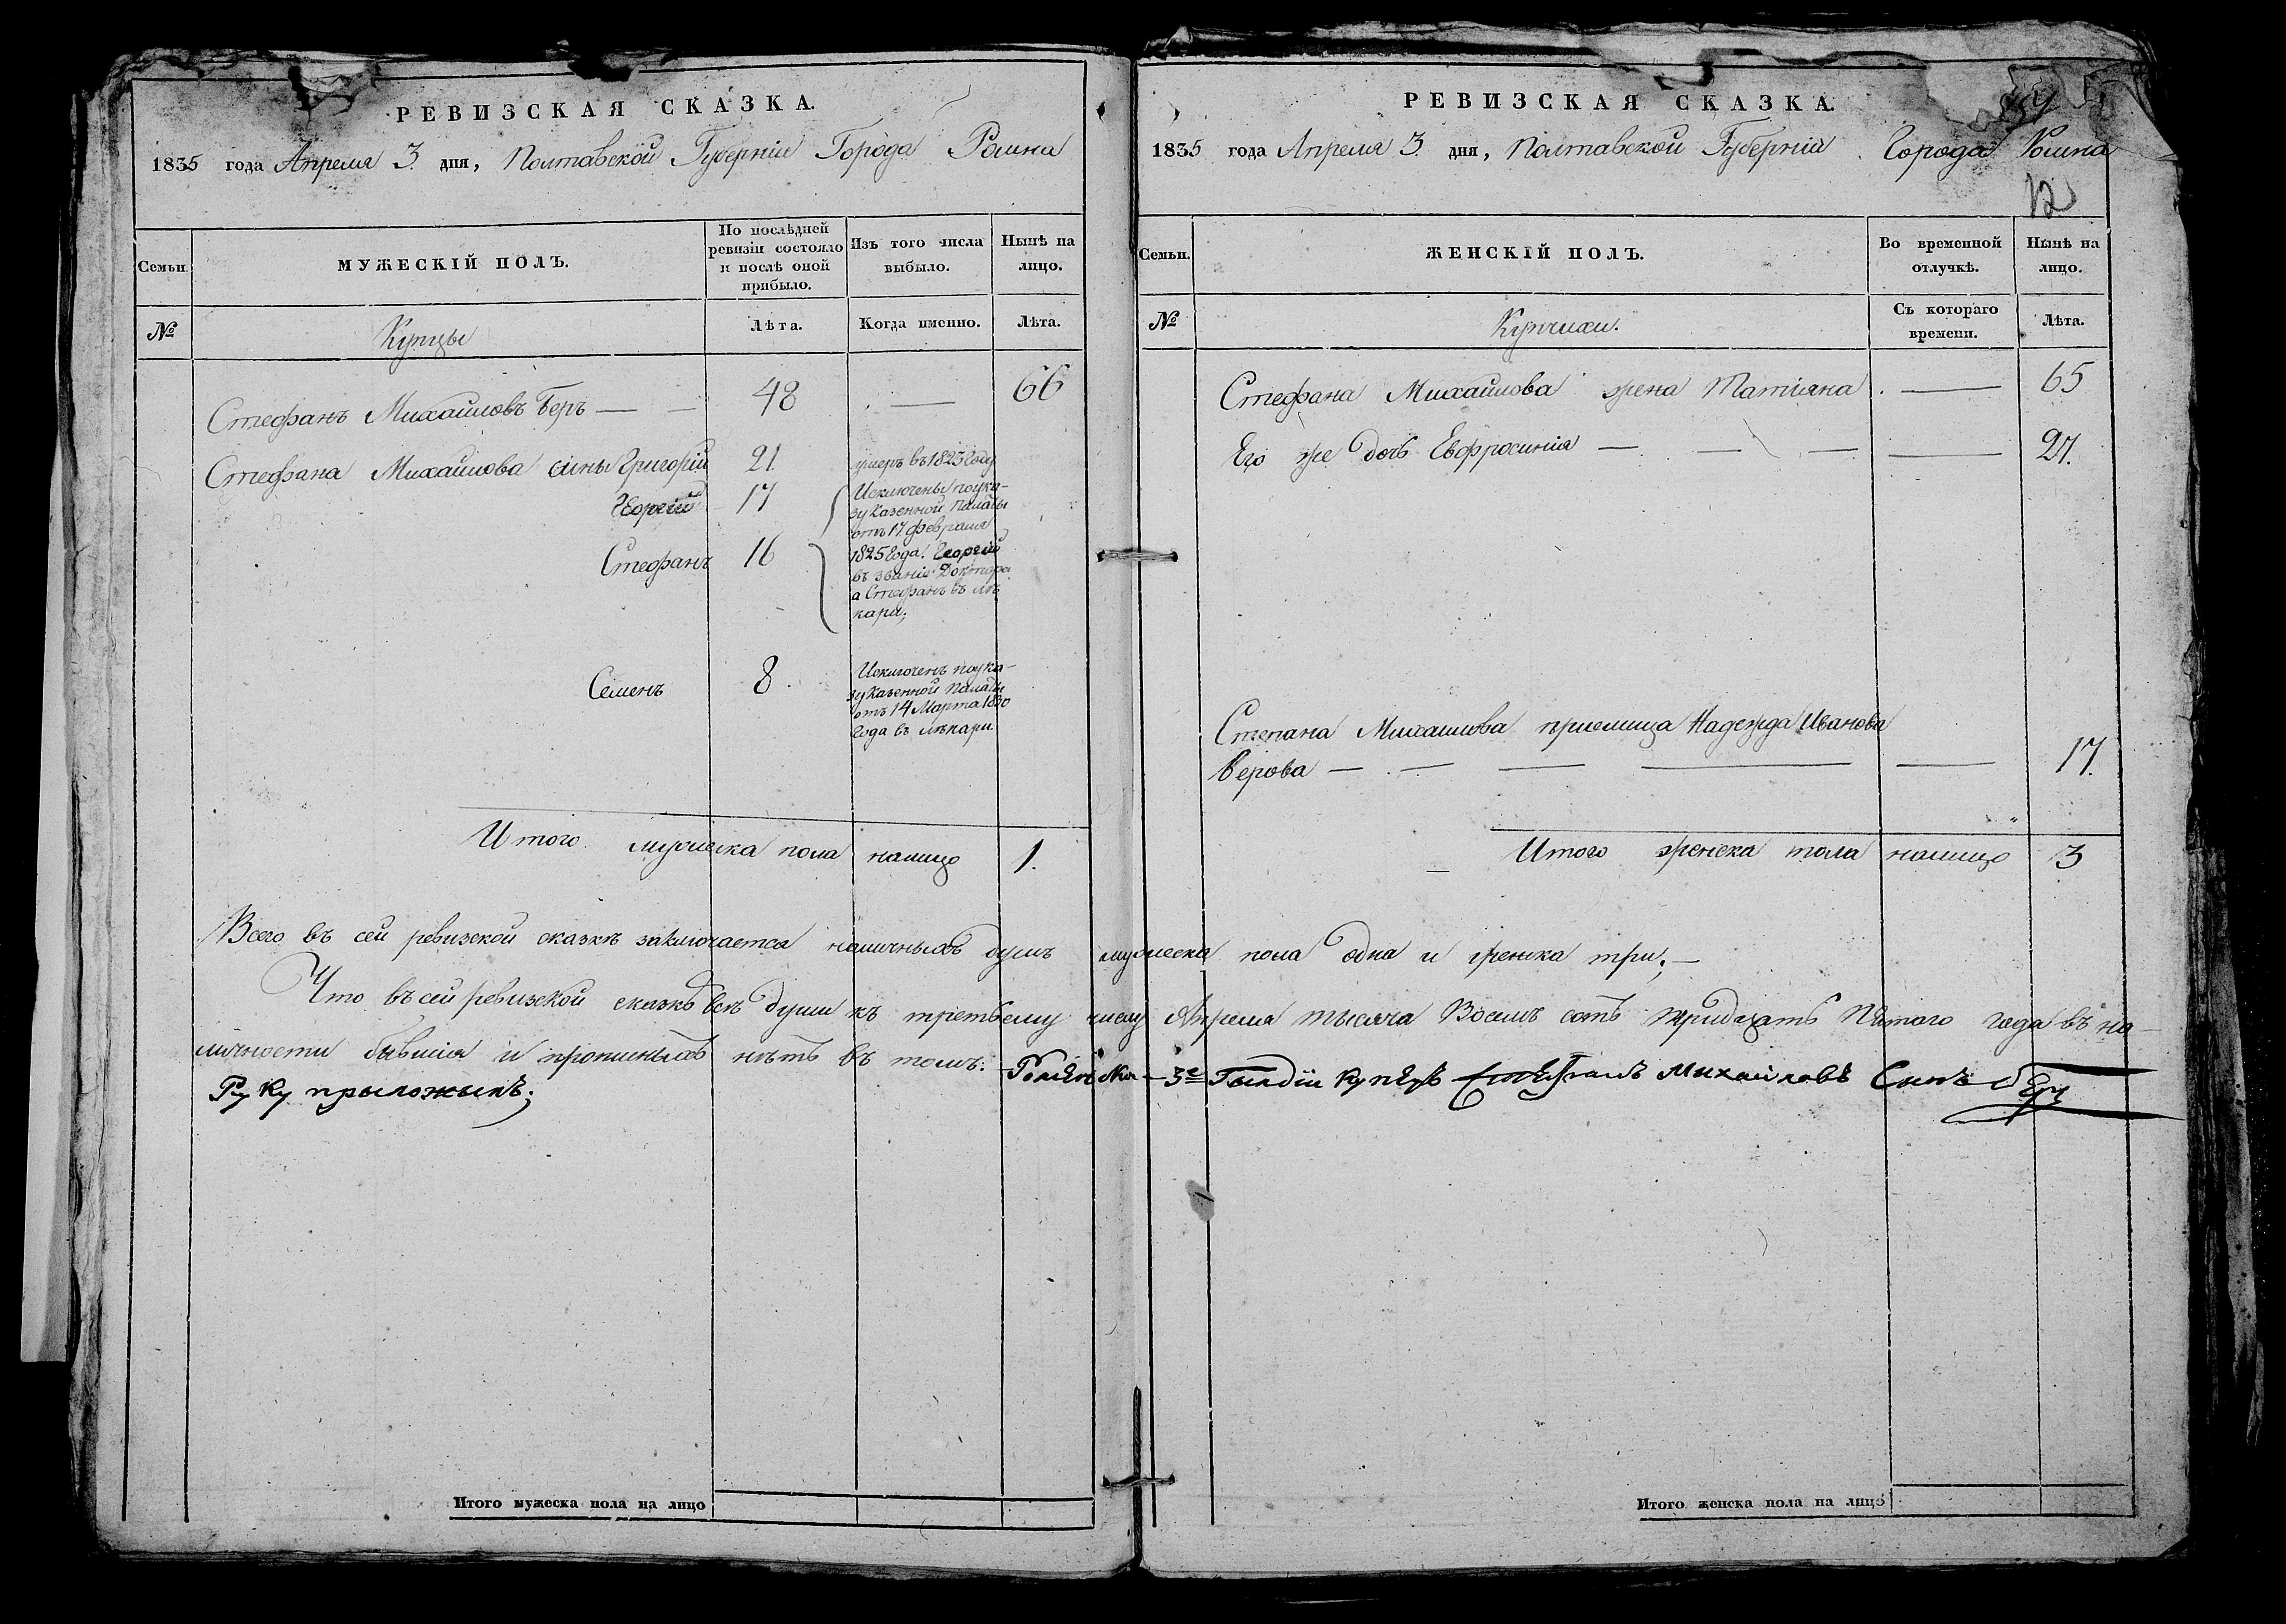 РЕВИЗСКАЯ СКАЗКА.
1835 года Апреля 3. дня, Полтавской Губерніи Города Ромна
Семьи.
МУЖЕСКІЙ ПОЛЪ.
По послѣдней ревизіи состояло и послѣ оной прибыло.
Изъ того числа выбыло.
Нынѣ на лицо.
№
Купцы
Лѣта.
Когда именно.
Лѣта.
Стефанъ Михайловъ Беръ — — 48 — 66
Стефана Михайлова сины Григорій 21. умеръ въ 1823 Году
Георгій 17
Стефанъ 16
Исключены поука-
зу Казенной Палаты
отъ 17 февраля
1825 Года. Георгій
въ званіе Доктора
а Стефанъ въ лѣ
кари;
Семенъ 8.
Исключенъ поука-
зу Казенной Палаты
отъ 14 Марта 1830
Года въ лѣкари
Итого мужеска пола налицо 1.
РЕВИЗСКАЯ СКАЗКА.
1835 года Апреля 3. дня, Полтавской Губерніи Города Ромна
12
Семьи.
ЖЕНСКІЙ ПОЛЪ.
Во временной отлучкѣ.
Нынѣ на лицо.
№
Купчихи.
Съ котораго времени.
Лѣта.
Стефана Михайлова жена Татіяна — 65
Его же дочь Евфросинія — — — — 27.
Степана Михаилова приемища Надежда Иванова
Берова — — — — — 17.
Итого женска пола налицо 3
Всего въ сей ревизской сказкѣ заключается наличныхъ душъ мужеска пола одна и женска три; —
Что въ сей ревизской сказкѣ всѣ души къ третьему числу Апреля тысяча Восемь сотъ тридцать Пятого года въ на-
личности бывшія и прописныхъ нѣтъ въ томъ: 3е Гылдіи Купецъ Стефанъ Михайловъ Синъ Беръ
Руку прыложылъ;
Итого мужеска пола на лицо
Итого женска пола на лицо